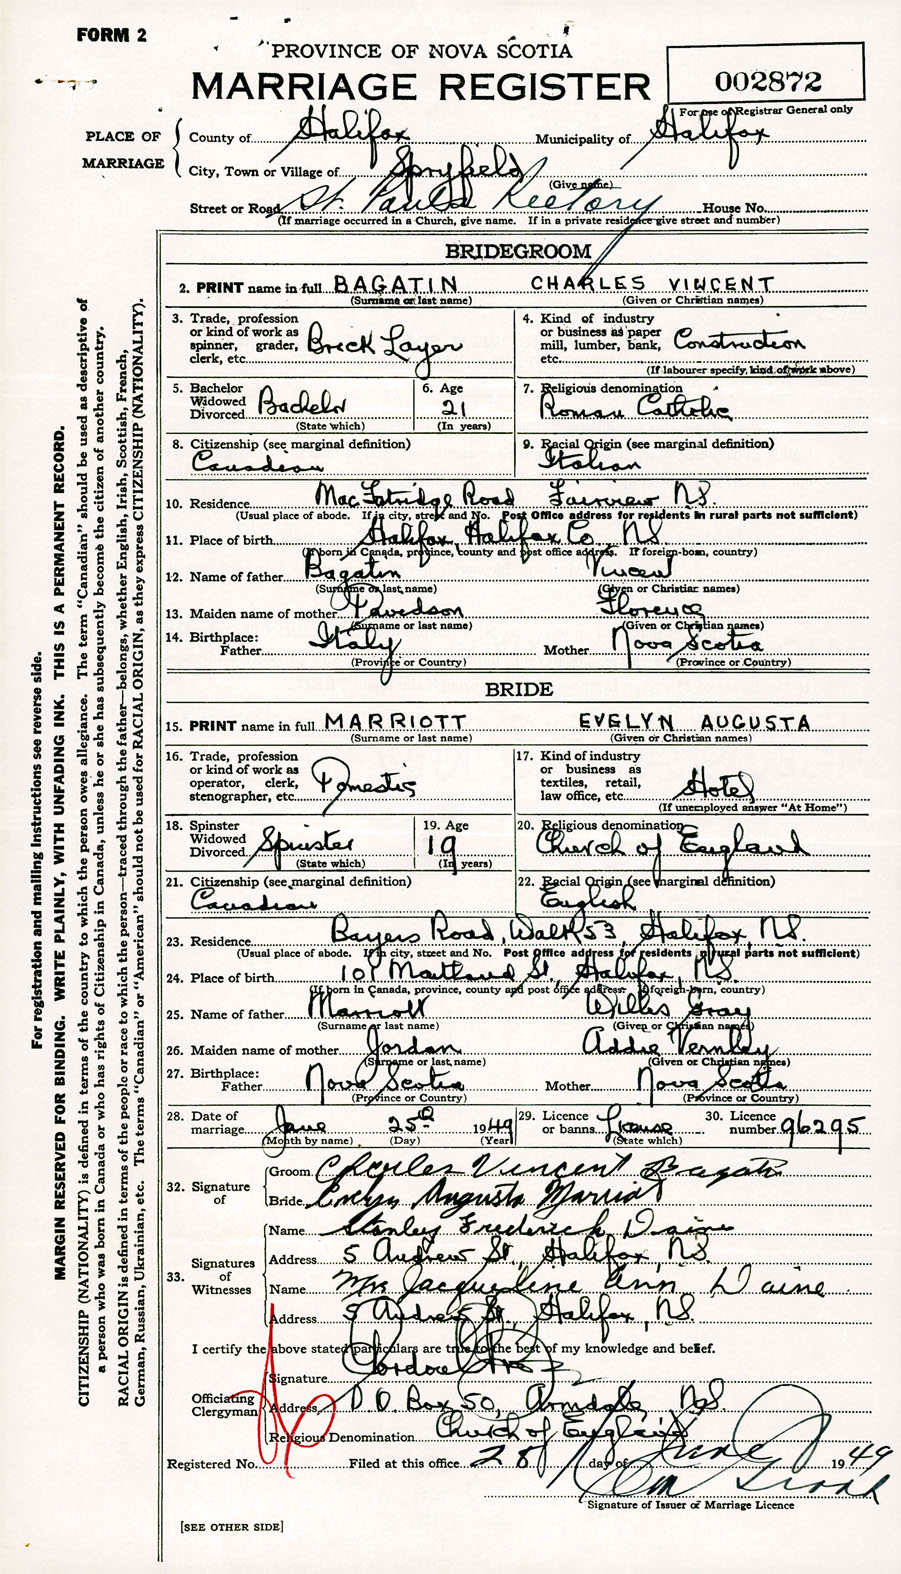 FORM 2
PROVINCE OF NOVA SCOTIA
MARRIAGE REGISTER
002872
For use of Registrar General only
PLACE OF MARRIAGE
County of Halifax Municipality of Halifax
City, Town or Village of Spryfield
(Give name)
Street or Road St. Pauls Rectory House No.
(If marriage occurred in a Church, give name. If in a private residence give street and number)
BRIDEGROOM
2. PRINT name in full BAGATIN CHARLES VINCENT
(Surname or last name) (Given or Christian names)
3. Trade, profession or kind of work as spinner, grader, clerk, etc. Brick Layer
4. Kind of industry or business as paper mill, lumber, bank, etc. Construction
(If labourer specify, kind of work above)
5. Bachelor Widowed Divorced Bachelor
(State which)
6. Age 21
(In years)
7. Religious denomination
Roman Catholic
8. Citizenship (see marginal definition)
Canadian
9. Racial Origin (see marginal definition)
Italian
10. Residence MacFatridge Road Fairview N.S.
(Usual place of abode. If in city, street and No. Post Office address for residents in rural parts not sufficient)
11. Place of birth Halifax, Halifax Co. N.S.
(If born in Canada, province, county and post office address. If foreign-born, country)
12. Name of father Bagatin Vincent
(Surname or last name) (Given or Christian names)
13. Maiden name of mother Davidson Florence
(Surname or last name) (Given or Christian names)
14. Birthplace:
Father Italy Mother Nova Scotia
(Province or Country) (Province or Country)
BRIDE
15. PRINT name in full MARRIOTT EVELYN AUGUSTA
(Surname or last name) (Given or Christian names)
16. Trade, profession or kind of work as operator, clerk, stenographer, etc. Domestic
17. Kind of industry or business as textiles, retail, law office, etc. Hotel
(If unemployed answer "At Home")
18. Spinster Widowed Divorced Spinster
(State which)
19. Age 19
(In years)
20. Religious denomination
Church of England
21. Citizenship (see marginal definition)
Canadian
22. Racial Origin (see marginal definition)
English
23. Residence Bayers Road, Walk 53, Halifax, N.S.
(Usual place of abode. If in city, street and No. Post Office address for residents in rural parts not sufficient)
24. Place of birth 101 Maitland St, Halifax, N.S.
(If born in Canada, province, county and post office address. If foreign-born, country)
25. Name of father Marriott Gray
(Surname or last name) (Given or Christian names)
26. Maiden name of mother Jordan Addie
(Surname or last name) (Given or Christian names)
27. Birthplace:
Father Nova Scotia Mother Nova Scotia
(Province or Country) (Province or Country)
28. Date of marriage June 25th 1949
(Month by name) (Day) (Year)
29. Licence or banns License
(State which)
30. Licence number 96295
32. Signature of
Groom Charles Vincent Bagatin
Bride Evelyn Augusta Marriott
33. Signatures of Witnesses
Name Stanley Frederick Daine
Address 5 Andrew St., Halifax, N.S.
Name Mrs Jacqueline Ann Daine
Address 5 Andrew St., Halifax, N.S.
I certify the above stated particulars are true to the best of my knowledge and belief.
Officiating Clergyman
Signature
Address P.O. Box 50, Armdale, N.S.
Religious Denomination Church of England
Registered No. Filed at this office 28 day of June 1949
Signature of Issuer of Marriage Licence
[SEE OTHER SIDE]
For registration and mailing instructions see reverse side.
MARGIN RESERVED FOR BINDING. WRITE PLAINLY, WITH UNFADING INK. THIS IS A PERMANENT RECORD.
CITIZENSHIP (NATIONALITY) is defined in terms of the country to which the person owes allegiance. The term "Canadian" should be used as descriptive of
a person who was born in Canada or who has rights of Citizenship in Canada, unless he or she has subsequently become the citizen of another country.
RACIAL ORIGIN is defined in terms of the people or race to which the person—traced through the father—belongs, whether English, Irish, Scottish, French,
German, Russian, Ukrainian, etc. The terms "Canadian" or "American" should not be used for RACIAL ORIGIN, as they express CITIZENSHIP (NATIONALITY).